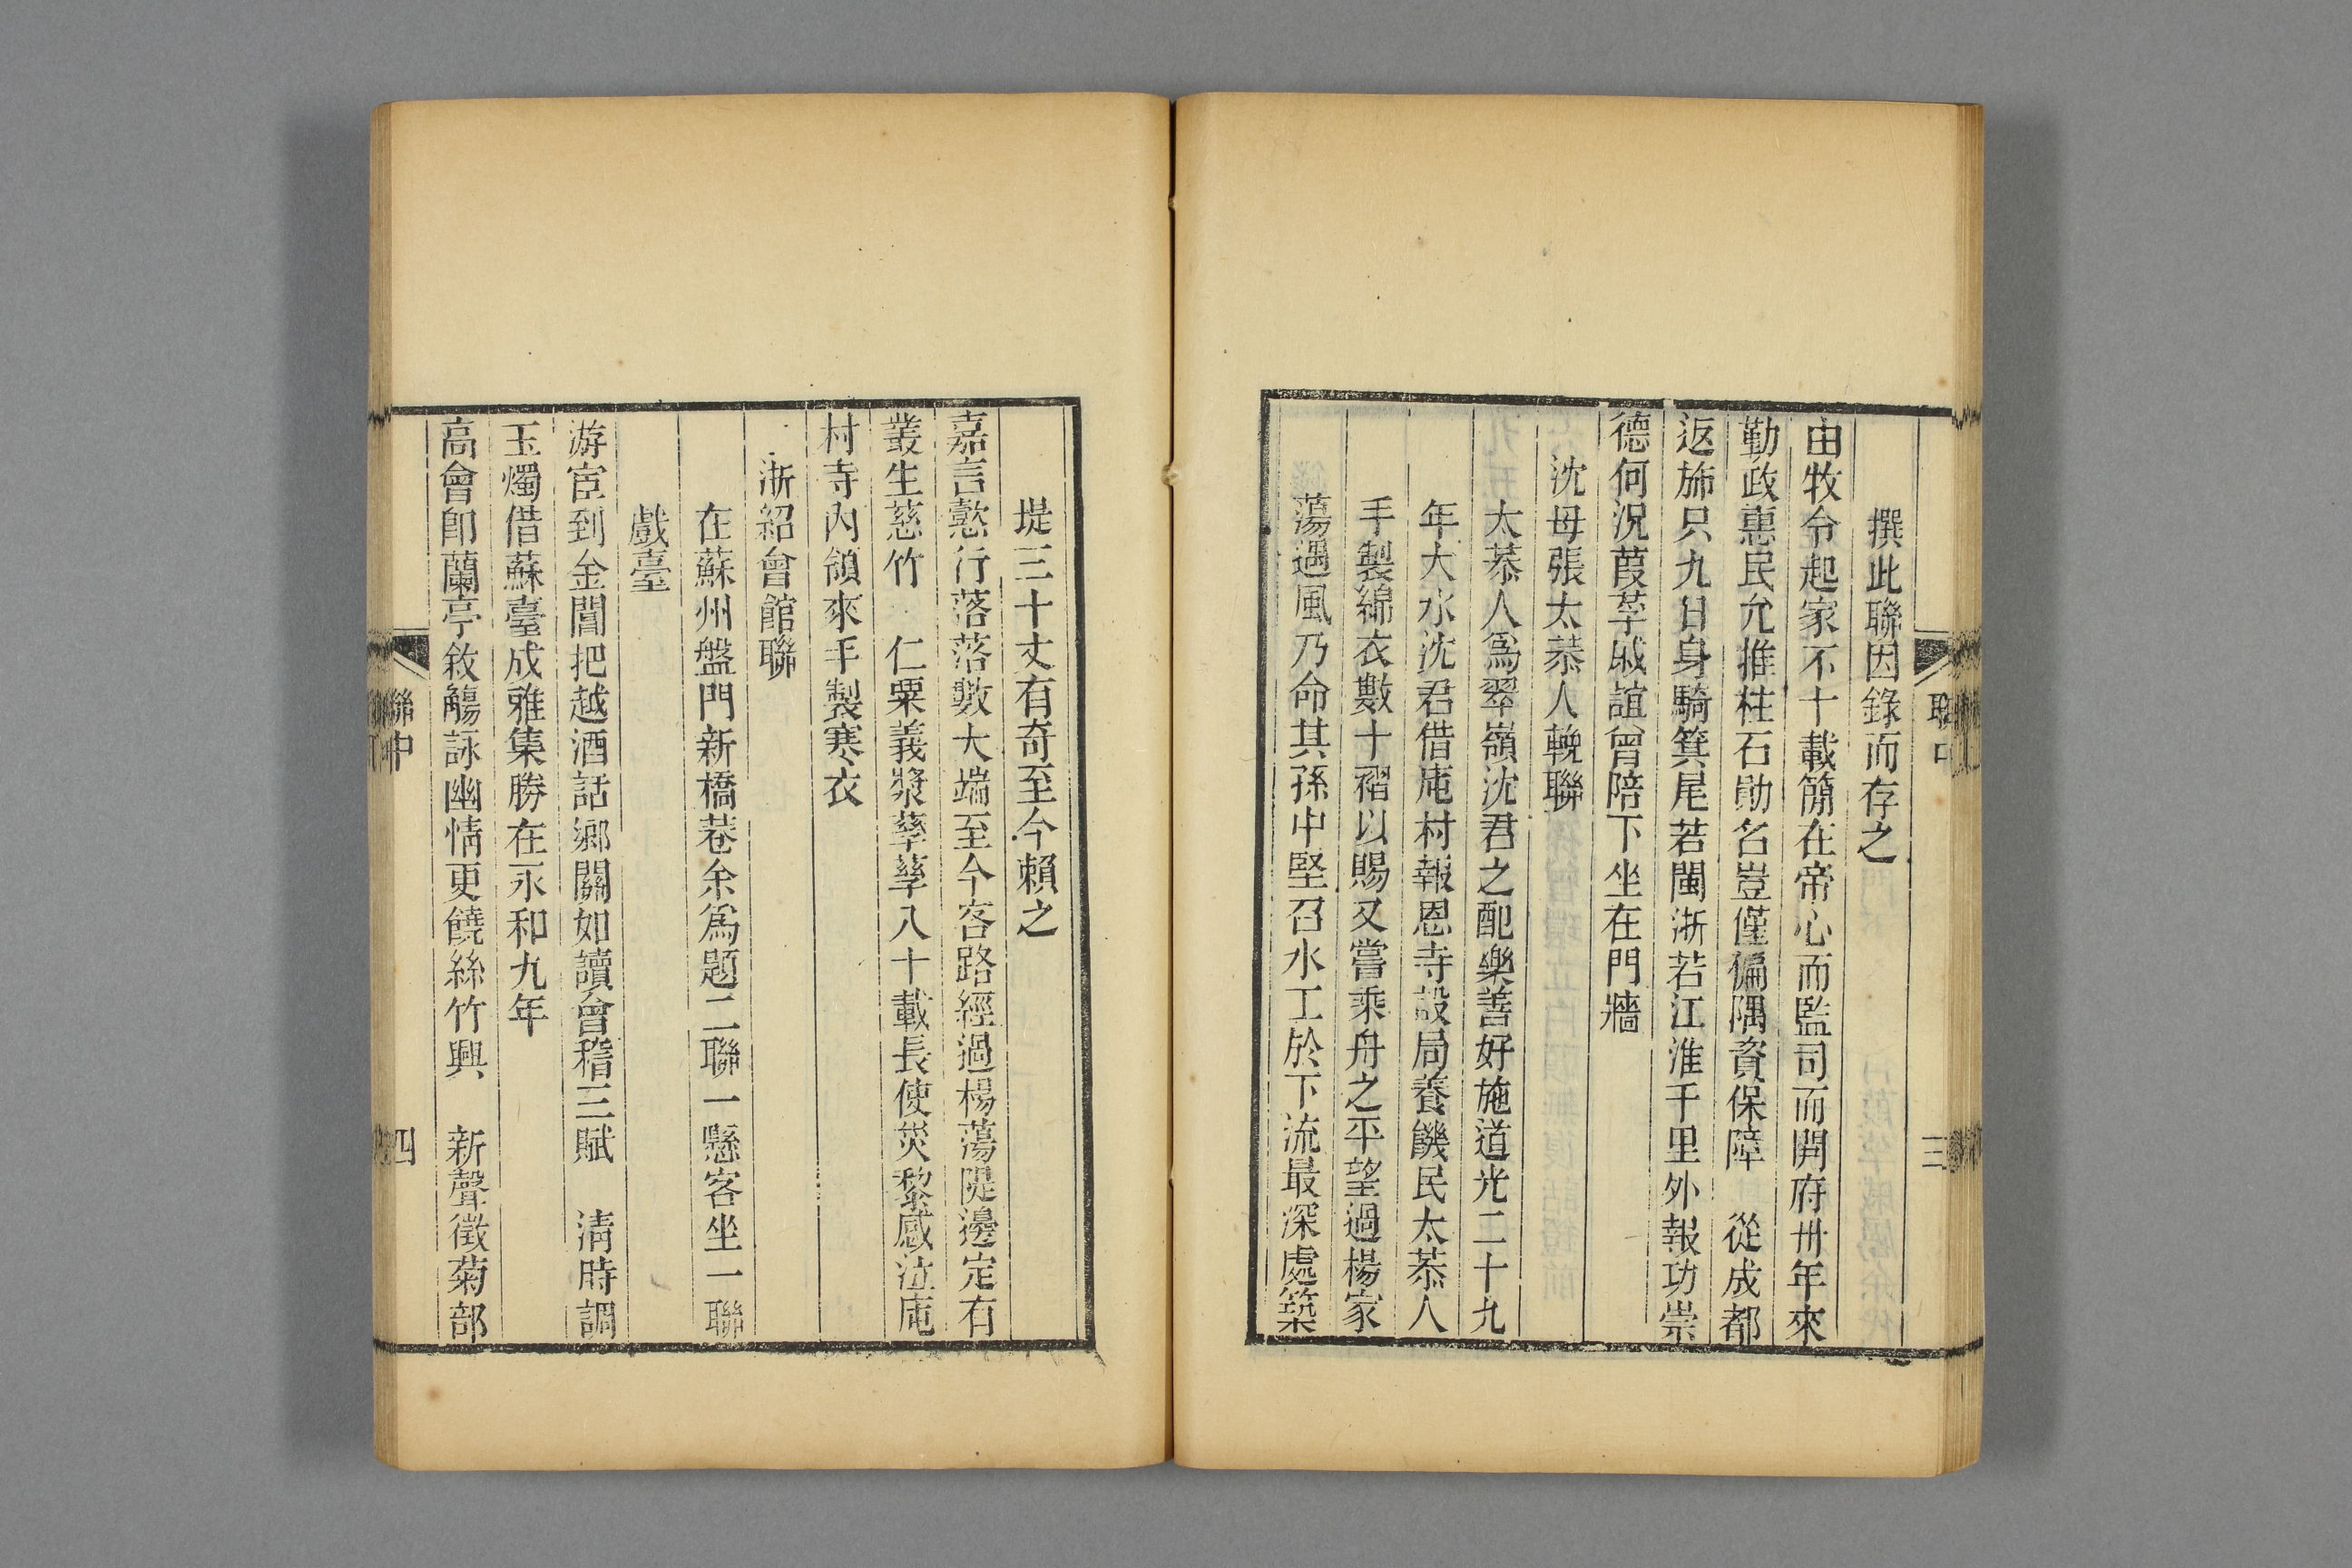 聯中
三
撰此聯因錄而存之
由牧令起家不十載簡在帝心而監司而開府卅年來
勤政惠民允推柱石勛名豈僅偏隅資保障　從成都
返斾只九日身騎箕尾若閩浙若江淮千里外報功崇
德何況葭莩戚誼曾陪下坐在門牆
沈母張太恭人輓聯
太恭人爲翠嶺沈君之配樂善好施道光二十九
年大水沈君借庵村報恩寺設局養饑民太恭人
手製綿衣數十褶以賜又嘗乘舟之平望過楊家
蕩遇風乃命其孫中堅召水工於下流最深處築
堤三十丈有奇至今賴之
嘉言懿行落落數大端至今客路經過楊蕩隄邊定有
叢生慈竹　仁粟義漿孳孳八十載長使災黎感泣庵
村寺內領來手製寒衣
浙紹會館聯
在蘇州盤門新橋巷余爲題二聯一懸客坐一聯
戲臺
游宦到金閶把越酒話鄉關如讀會稽三賦　淸時調
玉燭借蘇臺成雅集勝在永和九年
高會卽蘭亭敘觴詠幽情更饒絲竹興　新聲徵菊部
聯中
四